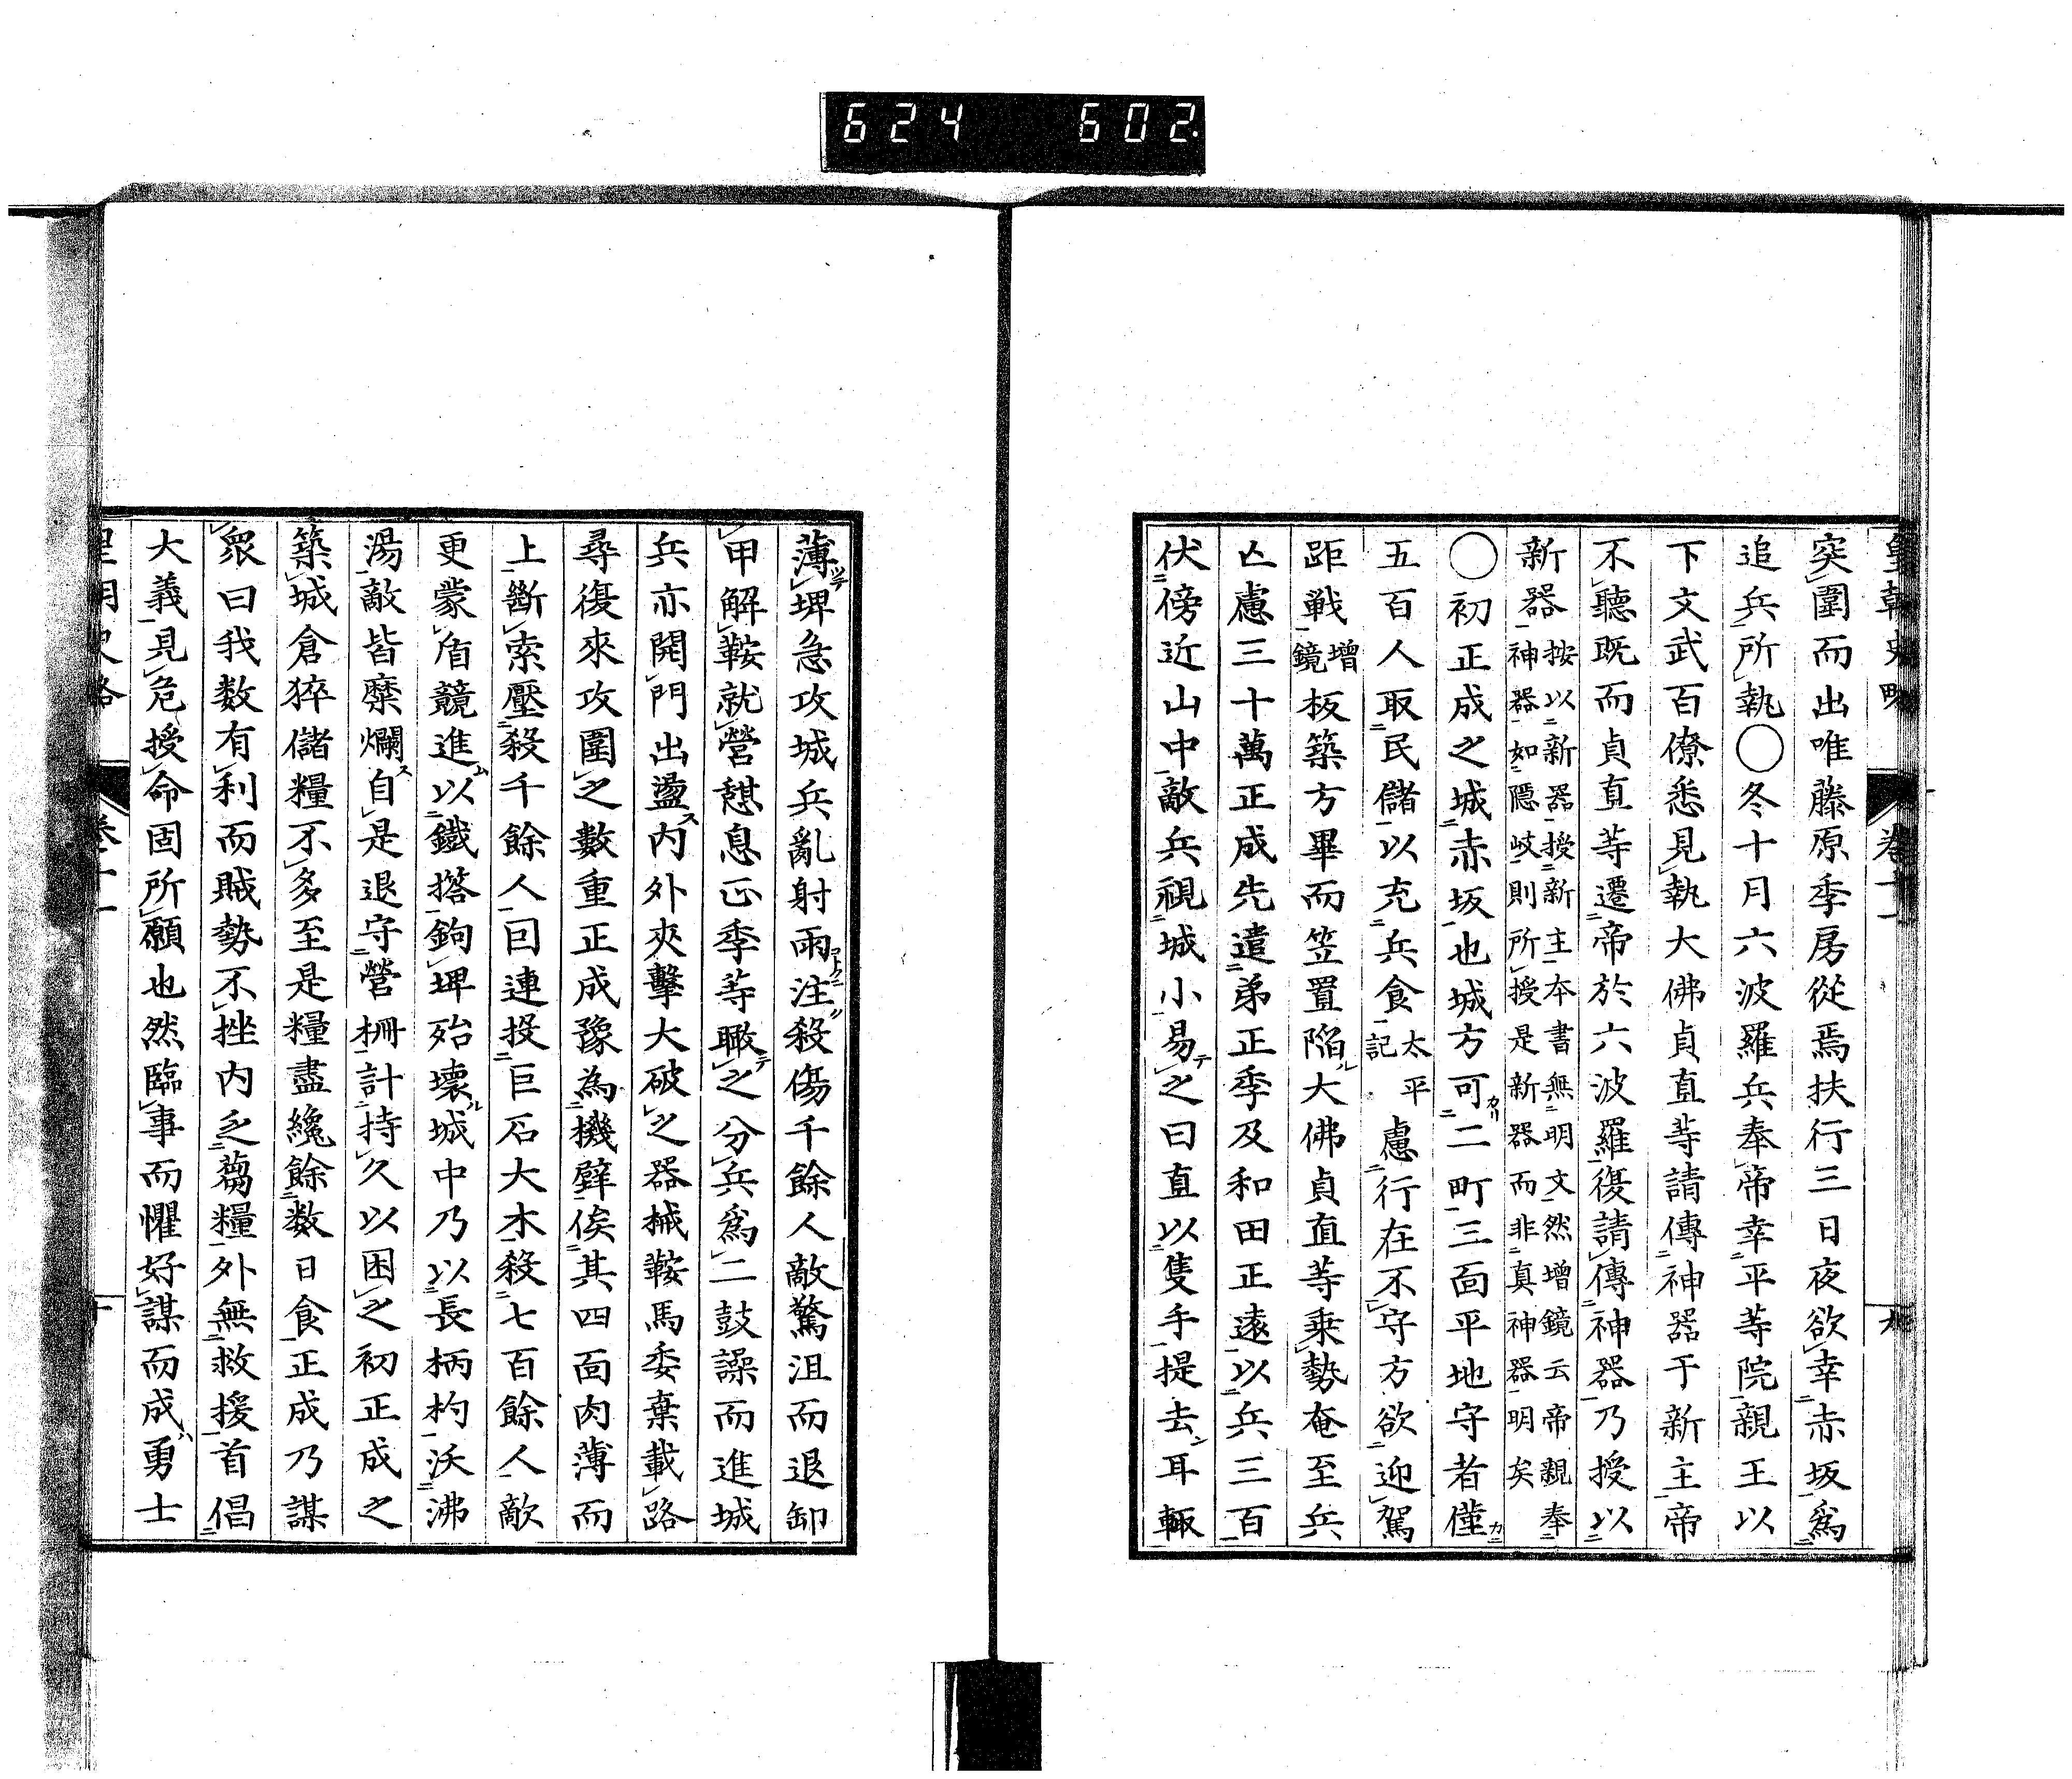 624 602
皇朝史略 卷十一 九
突圍而出唯藤原季房從焉扶行三日夜欲幸赤坂爲
追兵所執○冬十月六波羅兵奉帝幸平等院親王以
下文武百僚悉見執大佛貞直等請傳神器于新主帝
不聽既而貞直等遷帝於六波羅復請傳神器乃授以
新器按以新器授新主本書無明文然增鏡云帝親奉神器如隱岐則所授是新器而非真神器明矣
○初正成之城赤坂也城方可二町三面平地守者僅
五百人取民儲以充兵食太平記慮行在不守方欲迎駕
距戰增鏡板築方畢而笠置陷大佛貞直等乘勢奄至兵
亡慮三十萬正成先遣弟正季及和田正遠以兵三百
伏傍近山中敵兵視城小易之曰直以隻手提去耳輙
薄埤急攻城兵亂射雨注殺傷千餘人敵驚沮而退卸
甲解鞍就營憇息正季等瞰之分兵爲二鼓譟而進城
兵亦開門出盪內外夾擊大破之器械鞍馬委棄載路
尋復來攻圍之數重正成豫為機辟俟其四面肉薄而
上斷索壓殺千餘人回連投巨石大木殺七百餘人敵
更蒙盾競進以鐵撘鉤埤殆壞城中乃以長柄杓沃沸
湯敵皆糜爛自是退守營柵計持久以困之初正成之
築城倉猝儲糧不多至是糧盡纔餘数日食正成乃謀
衆曰我数有利而賊勢不挫內乏蒭糧外無救援首倡
大義見危授命固所願也然臨事而懼好謀而成勇士